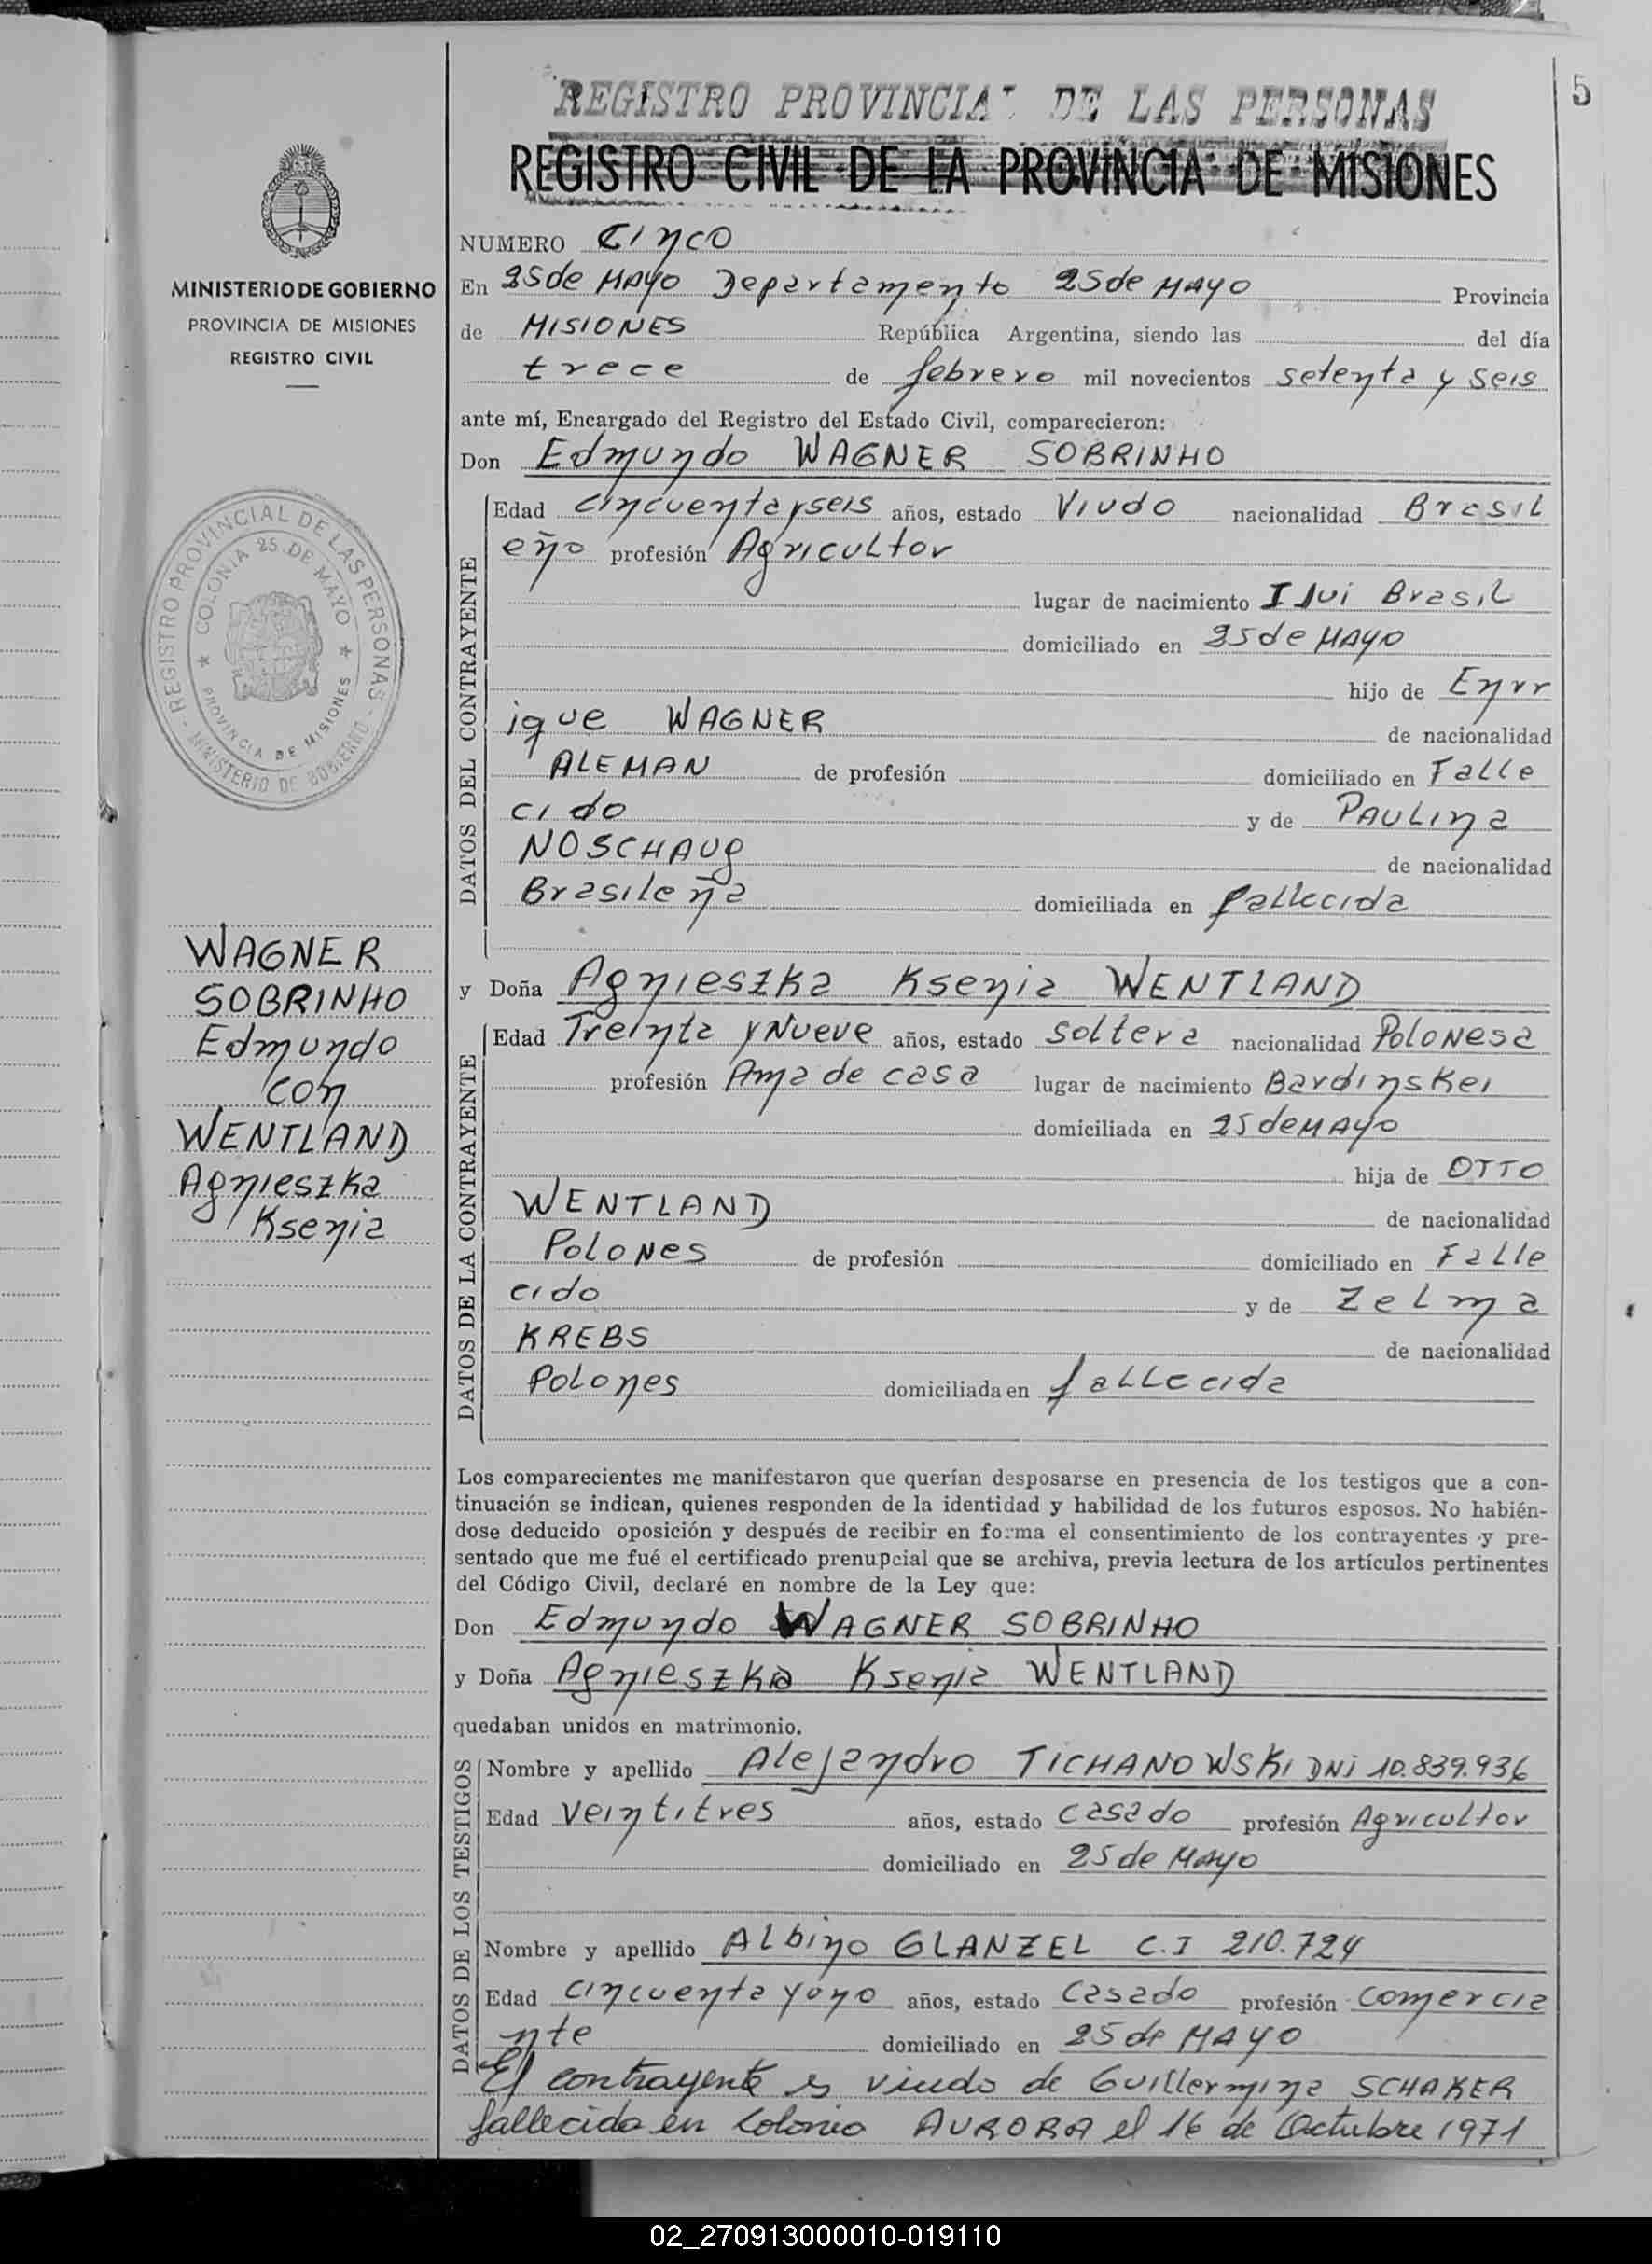 5
REGISTRO PROVINCIAL DE LAS PERSONAS
REGISTRO CIVIL DE LA PROVINCIA DE MISIONES
MINISTERIO DE GOBIERNO
PROVINCIA DE MISIONES
REGISTRO CIVIL
REGISTRO PROVINCIAL DE LAS PERSONAS - MINISTERIO DE GOBIERNO -
COLONIA 25 DE MAYO ★ PROVINCIA DE MISIONES ★
WAGNER
SOBRINHO
Edmundo
con
WENTLAND
Agnieszka
Ksenia
NUMERO Cinco
En 25 de MAYO Departamento 25 de MAYO Provincia
de MISIONES República Argentina, siendo las del día
trece de febrero mil novecientos setenta y seis
ante mí, Encargado del Registro del Estado Civil, comparecieron:
Don Edmundo WAGNER SOBRINHO
DATOS DEL CONTRAYENTE
Edad cincuenta y seis años, estado Viudo nacionalidad Brasil
eño profesión Agricultor
lugar de nacimiento IJui Brasil
domiciliado en 25 de MAYO
hijo de Enrr
ique WAGNER de nacionalidad
ALEMAN de profesión domiciliado en Falle
cido y de PAULINA
NOSCHAUg de nacionalidad
Brasileña domiciliada en fallecida
y Doña Agnieszka Ksenia WENTLAND
DATOS DE LA CONTRAYENTE
Edad Treinta y Nueve años, estado soltera nacionalidad Polonesa
profesión Ama de casa lugar de nacimiento Bardinskei
domiciliada en 25 de MAYO
hija de OTTO
WENTLAND de nacionalidad
Polones de profesión domiciliado en Falle
cido y de Zelma
KREBS de nacionalidad
Polones domiciliada en fallecida
Los comparecientes me manifestaron que querían desposarse en presencia de los testigos que a con-
tinuación se indican, quienes responden de la identidad y habilidad de los futuros esposos. No habién-
dose deducido oposición y después de recibir en forma el consentimiento de los contrayentes y pre-
sentado que me fué el certificado prenupcial que se archiva, previa lectura de los artículos pertinentes
del Código Civil, declaré en nombre de la Ley que:
Don Edmundo WAGNER SOBRINHO
y Doña Agnieszka Ksenia WENTLAND
quedaban unidos en matrimonio.
DATOS DE LOS TESTIGOS
Nombre y apellido Alejandro TICHANOWSKI DNi 10.839.936
Edad veintitres años, estado casado profesión Agricultor
domiciliado en 25 de MAYO
Nombre y apellido Albino GLANZEL C.I 210.724
Edad cincuenta y ono años, estado casado profesión comercia
nte domiciliado en 25 de MAYO
El contrayente es viudo de Guillermina SCHAKER
fallecida en Colonia AURORA el 16 de Octubre 1971
02_270913000010-019110